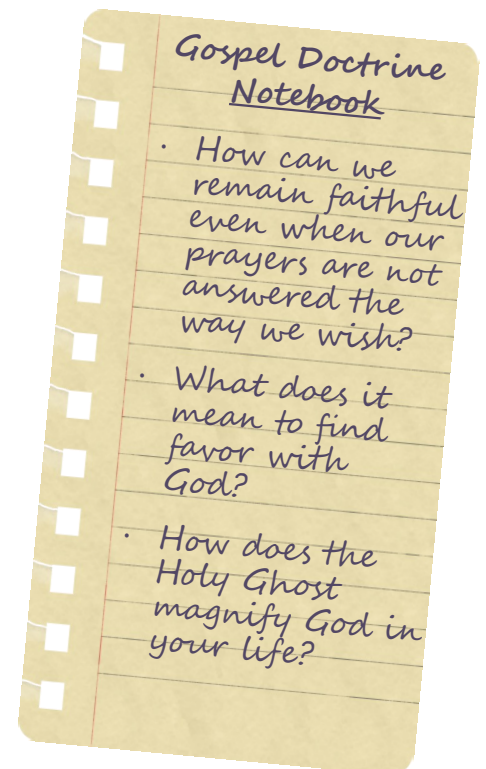 Gospel Doctrine
Notebook
• How can we
remain faithful
even when our
prayers are not
answered the
way we wish?
• What does it
mean to find
favor with
God?
• How does the
Holy Ghost
magnify God in
your life?